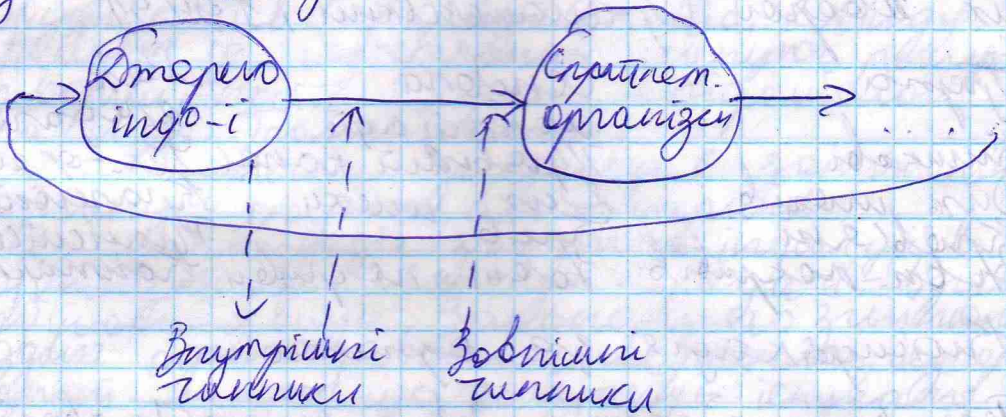 Джерело
інфо-ї
Сприйнят.
організм
Внутрішні
чинники
Зовнішні
чинники